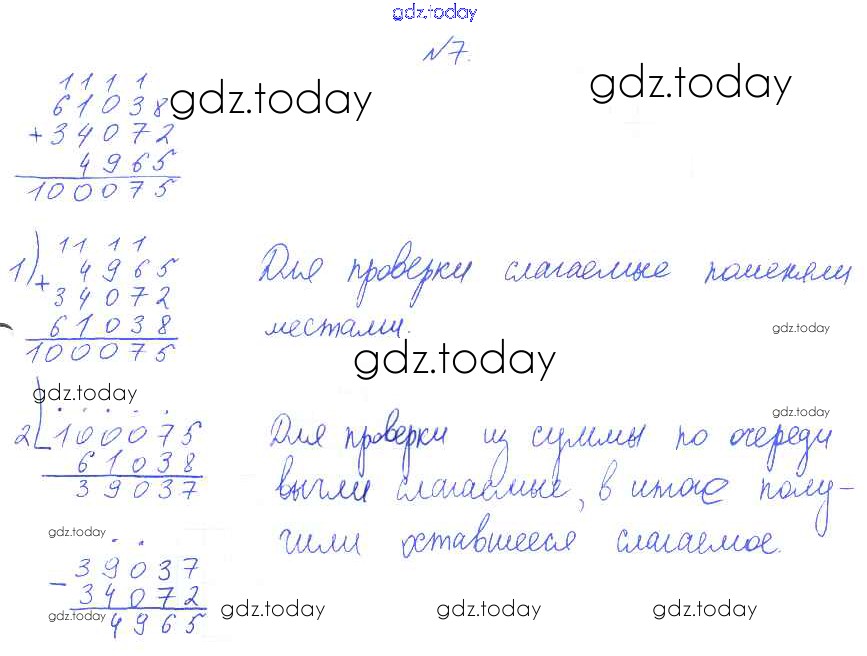 gdz.today
№7.
1 1 1 1
6 1 0 3 8
gdz.today
gdz.today
+ 3 4 0 7 2
4 9 6 5
1 0 0 0 7 5
1) 1 1 1 1
+ 4 9 6 5
3 4 0 7 2
6 1 0 3 8
1 0 0 0 7 5
Для проверки слагаемые поменяли
местами.
gdz.today
gdz.today
gdz.today
gdz.today
2) 1 0 0 0 7 5
6 1 0 3 8
3 9 0 3 7
Для проверки из суммы по очереди
вычли слагаемые, в итоге полу-
чили оставшееся слагаемое.
gdz.today
- 3 9 0 3 7
3 4 0 7 2
4 9 6 5
gdz.today
gdz.today
gdz.today
gdz.today